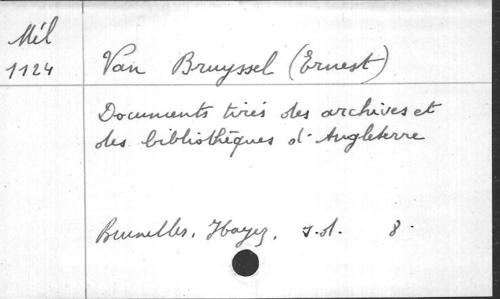 Mél
1124
Van Bruyssel (Ernest)
Documents tirés des archives et
des bibliothèques d'Angleterre
Bruxelles, Hayez, s.d. 8.